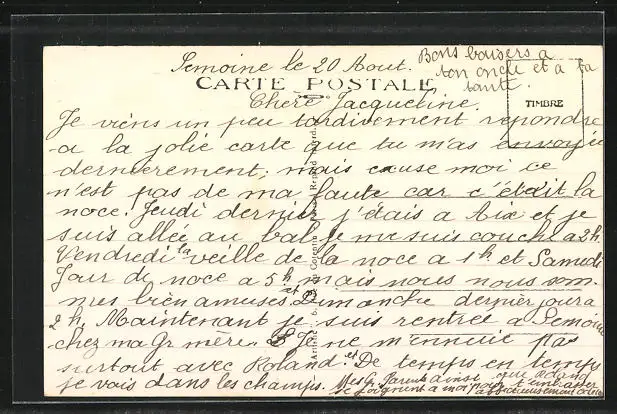 Semoine le 20 Aout.
Bons baisers a
ton oncle et a ta
tante.
CARTE POSTALE
TIMBRE
Chère Jacqueline.
Je viens un peu tardivement repondre
a la jolie carte que tu m'as envoyée
dernierement, mais excuse moi ce
n'est pas de ma faute car c'était la
noce. Jeudi dernier j'étais a Aix et je
suis allée au bal je me suis couché a 2h.
Vendredi la veille de la noce a 1h et Samedi
Jour de noce a 5h mais nous nous som-
mes bien amusés et Dimanche dernier
2h. Maintenant je suis rentrée a Semoine
chez ma Gr mère. Je ne m'ennuie pas
surtout avec Roland. De temps en temps
je vais dans les champs.
Mes Gr Parents ainsi que Roland
se joignent a moi pour t'embrasser